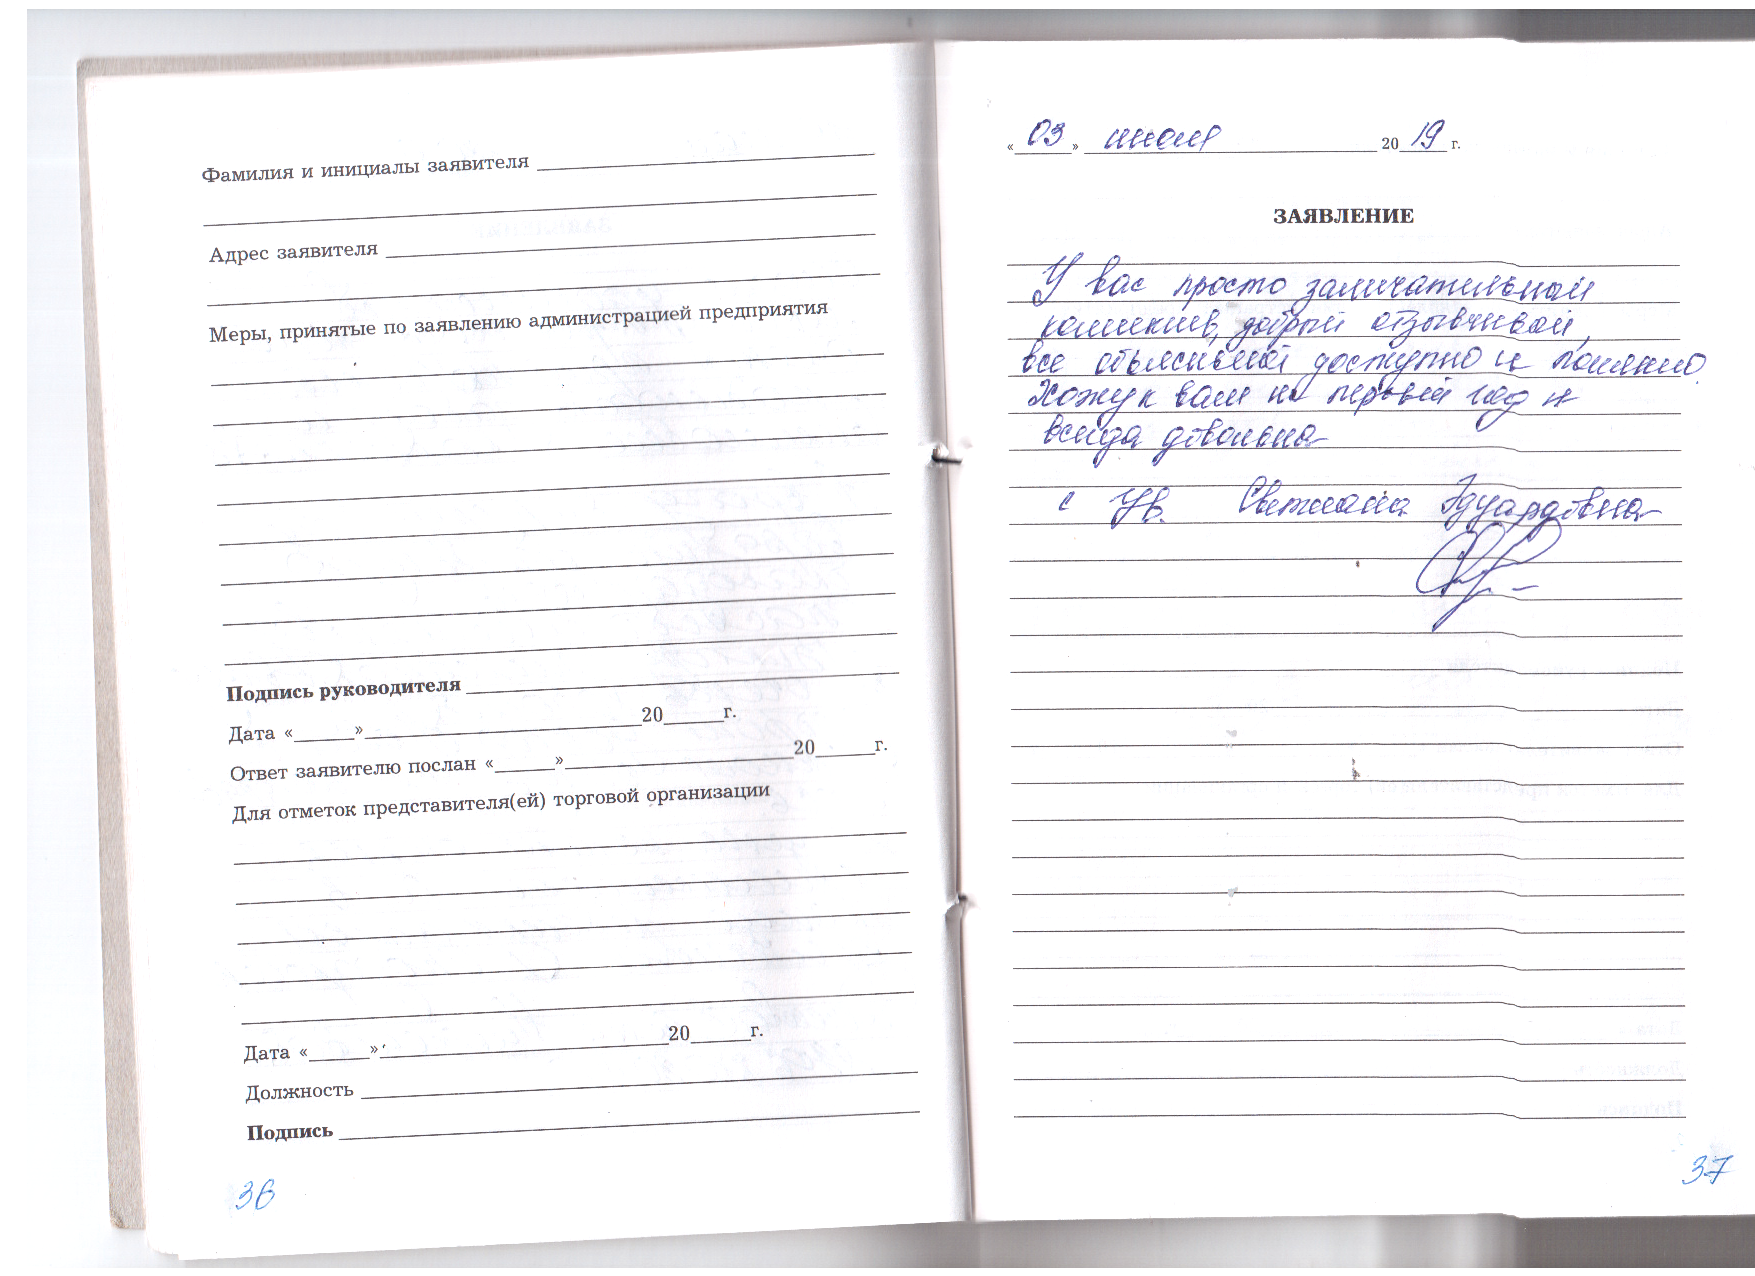 Фамилия и инициалы заявителя
Адрес заявителя
Меры, принятые по заявлению администрацией предприятия
Подпись руководителя
Дата «______»______20______г.
Ответ заявителю послан «______»______20______г.
Для отметок представителя(ей) торговой организации
Дата «______»______20______г.
Должность
Подпись
36
«03» июля 2019 г.
ЗАЯВЛЕНИЕ
У вас просто замичательный
коллектив, добрый отзывчивый,
все объясняют доступно и понятно
Хожу к вам не первый год и
всегда довольна
с ув. Светлана Эдуардовна
37